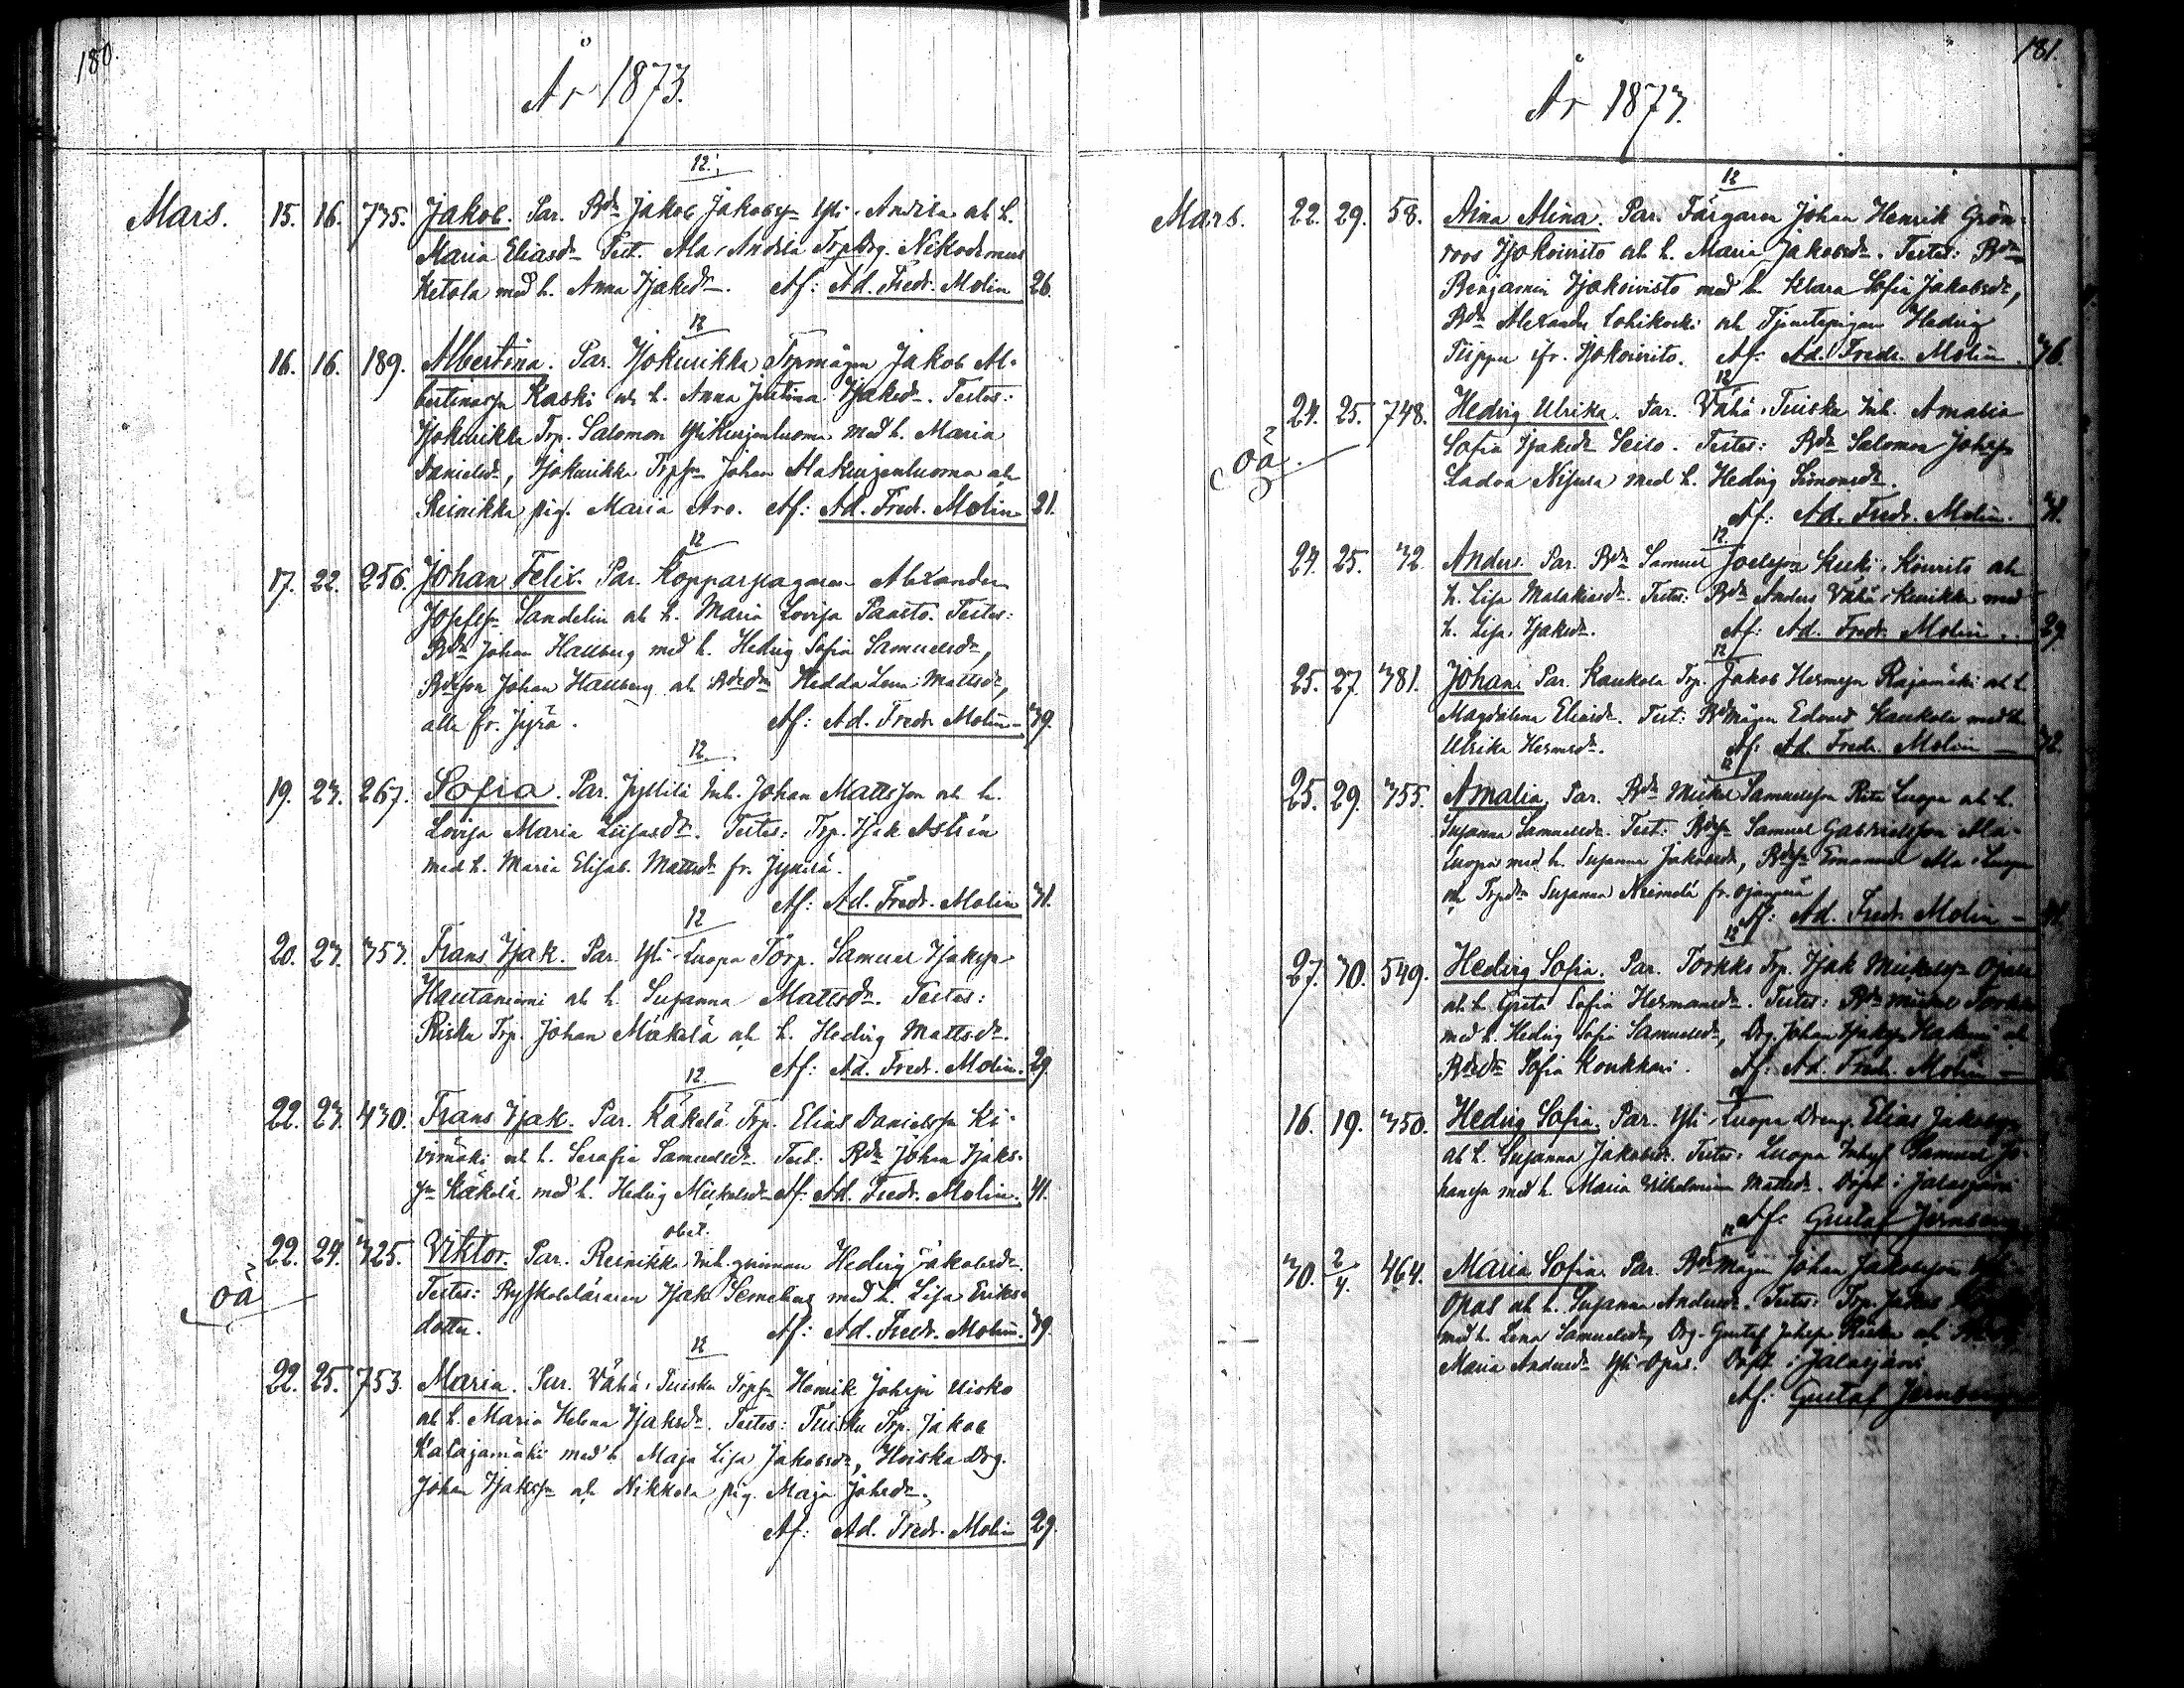 180.
År 1873.
12.
Mars. 15. 16. 735. Jakob. Par. Bdn Jakob Jakobss Yli-Andila och h.
Maria Eliasdr Test. Ala-Andila TrpDrg. Nikodemus
Ketola med h. Anna Isaksdr. Af: Ad. Fredr. Molin 26.
12
16. 16. 189. Albertina. Par. Isokurikka Trpmågen Jakob Al-
bertinass Kaski och h. Anna Justina Isaksdr. Testes:
Isokurikka Trp. Salomon Ylikurjenluoma med h. Maria
Danielsdr, Isokurikka Trpsn Johan Alakurjenluoma och
Reinikka pig. Maria Aro. Af: Ad. Fredr. Molin 21.
12
17. 22. 256. Johan Felix. Par. Kopparslagaren Alexander
Josefss Sandelin och h. Maria Lovisa Paasto. Testes:
Bdn Johan Hallberg med h. Hedvig Sofia Samuelsdr,
Bdeson Johan Hallberg och Bdedn Hedda Lena Mattsdr,
alla fr. Jyrä. Af: Ad. Fredr. Molin 39.
12
19. 23. 267. Sofia. Par. Jyllili Inh. Johan Mattsson och h.
Lovisa Maria Liisasdr. Testes: Trp. Isak Astrén
med h. Maria Elisab. Mattsdr fr.
Af: Ad. Fredr. Molin 31.
12
20. 23. 353. Frans Isak. Par. Yli-Luopa Torp. Samuel Isakss
Hautaniemi och h. Susanna Mattsdr. Testes:
Riska Trp. Johan Mäkelä och h. Hedvig Mattsdr.
Af: Ad. Fredr. Molin. 29.
12.
22. 23. 430. Frans Isak. Par. Käkelä Trp. Elias Danielss Ki-
vimäki och h. Serafia Samuelsdr Test: Bdn Johan Isaks-
sn Käkelä med h. Hedvig Mickelsdr Af: Ad. Fredr. Molin. 41.
obet.
oä
22. 24. 325. Viktor. Par. Reinikka Inh.qvinnan Hedvig Jakobsdr.
Testes: Byskoleläraren Isak Semeberg med h. Lisa Eriks-
dotter. Af: Ad. Fredr. Molin. 39.
12
22. 25. 753. Maria. Par. Vähä-Tuiska Trpsn Henrik Johss Uisko
och h. Maria Helena Isaksdr. Testes: Tuiska Trp. Jakob
Katajamäki med h. Maja Lisa Jakobsdr, Hoiska Drg.
Johan Isakss och Nikkola pig. Maja Johsdr.
Af: Ad. Fredr. Molin 29.
181.
År 1873.
12
Mars. 22. 29. 58. Nina Alina. Par. Färgaren Johan Henrik Grön-
roos Isokoivisto och h. Maria Jakobsdr. Testes: Bdn
Benjamin Isokoivisto med h. Klara Sofia Jakobsdr,
Bdn Alexander Lohikoski och Tjenstepigan Hedvig
Tiippa fr. Isokoivisto. Af: Ad. Fredr. Molin. 36.
12
oä.
24. 25. 748. Hedvig Ulrika. Par. Vähä-Tuiska Inh. Amalia
Sofia Isaksdr Seiro. Testes: Bdn Salomon Johss
Ladva Nisula med h. Hedvig Simonsdr.
Af: Ad. Fredr. Molin. 31.
12.
24. 25. 32. Anders. Par. Bdn Samuel Joelsson Keski-Koivisto och
h. Lisa Malakiasdr. Testes: Bdn Anders Vähä-kurikka med
h. Lisa Isaksdr. Af: Ad. Fredr. Molin. 29
12
25. 27. 381. Johan. Par. Kaukola Trp. Jakob Hermss Rajamäki och h.
Magdalena Eliasdr. Test: Bdmågen Edvard Kaukola med h.
Ulrika Hermsdr. Af: Ad. Fredr. Molin 32.
12
25. 29. 355. Amalia, Par. Bdn Mickel Samuelsson Rita Luopa och h.
Susanna Samuelsdr. Test: Bdsn Samuel Gabrielsson Ala-
Luopa med h. Susanna Jakobsdr, Bdsn Emanuel Ala-Luopa
och Trpdn Susanna fr.
Af: Ad. Fredr. Molin
12
27. 30. 549. Hedvig Sofia. Par. Torkko Trp. Isak Mickelss Ojala
och h. Greta Sofia Hermansdr. Testes: Bdn Mickel Torkko
med h. Hedvig Sofia Samuelsdr, Drg. Johan Isakss Hakuni och
Bdedr Sofia Koukkari. Af: Ad. Fredr. Molin
12
16. 19. 350. Hedvig Sofia. Par. Yli-Luopa Dreng. Elias Jakobss
och h. Susanna Jakobsdr. Testes: Luopa Inhys. Samuel Jo-
hanss med h. Maria Wilhelmina Mattsdr. Döpt i Jalasjärvi
Af: Gustaf Jernberg
12
30. 2/4. 464. Maria Sofia. Par. Bdmågen Johan Jakobsson Yli-
Opas och h. Susanna Andersdr. Testes: Trp. Jakob
med h. Lena Samuelsdr, Drg. Gustaf Johss och
Maria Andersdr Yli-Opas. Döpt i Jalasjärvi
Af: Gustaf Jernberg